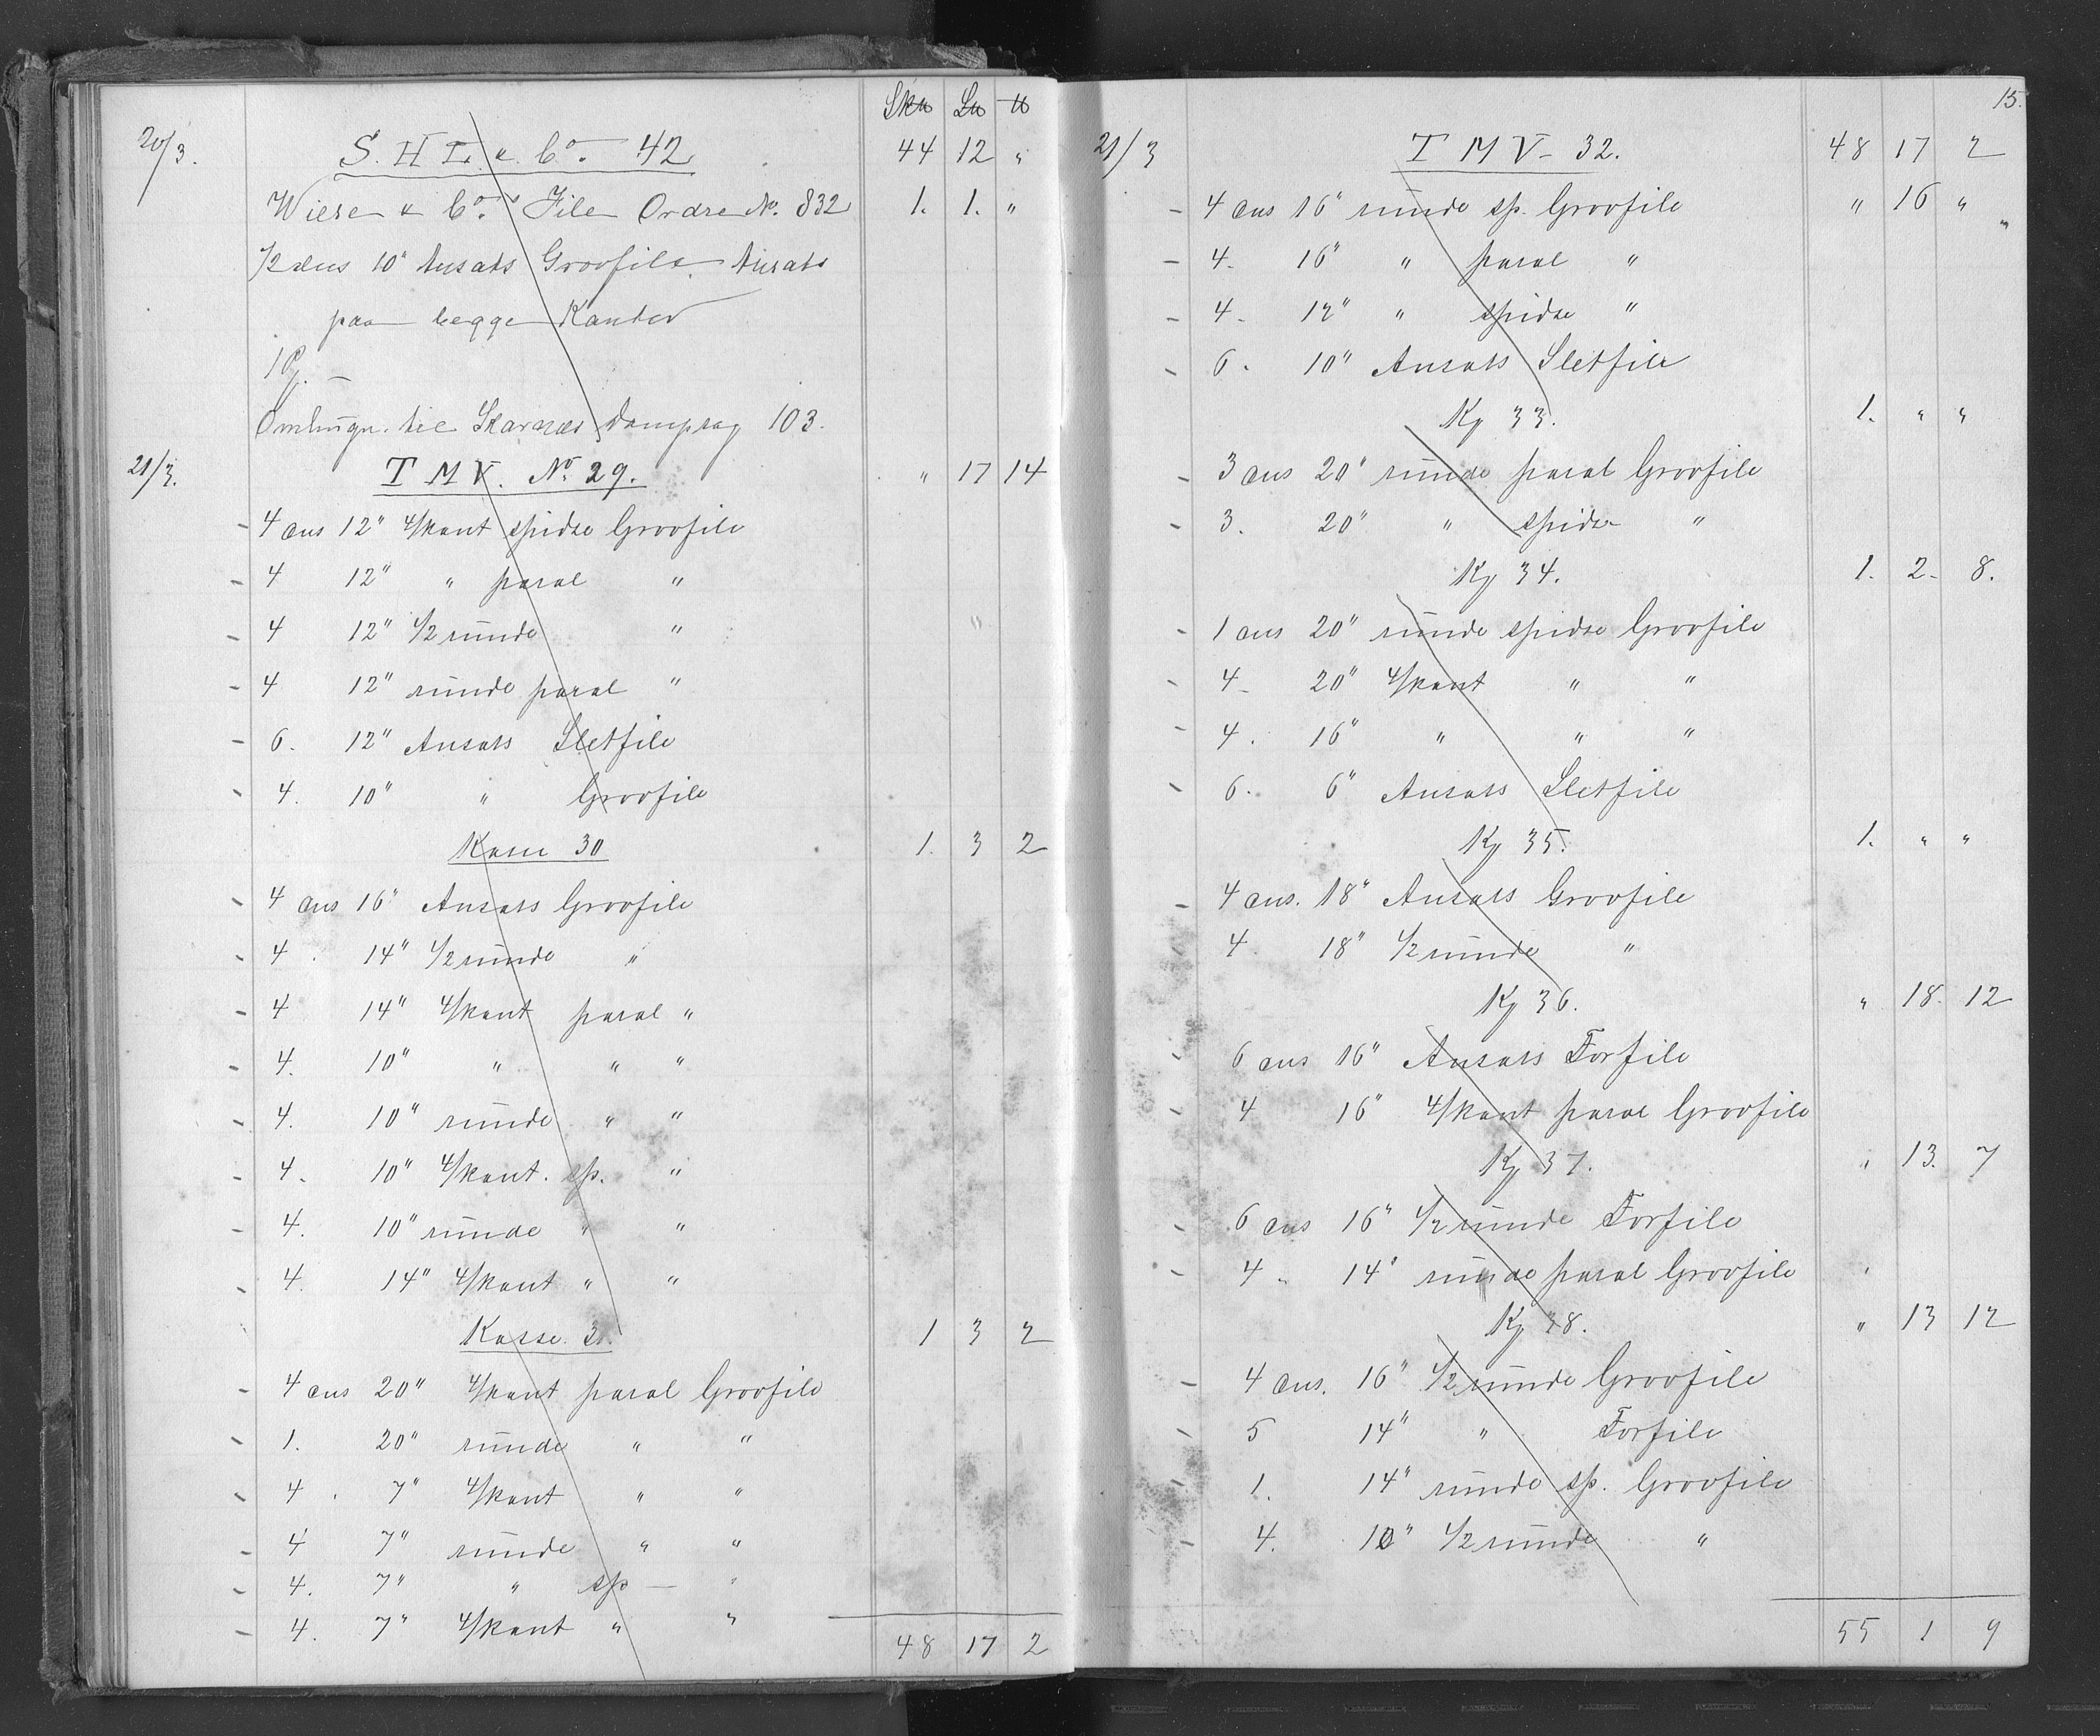 Sk℔ L℔ ℔
20/3. S. H. L. & Co. 42 44 12 "
Wiese & Co. File Ordre No. 832 1. 1. "
1/2 dus 10" Ansats Grovfile Ansats
paa begge Kanter
1 Kj.
Ombugn. til Skarnæs Dampsag 103.
21/3. T M V. No. 29. " 17 14
- 4 dus 12" 4/kant spidse Grovfile
- 4 12" " paral "
- 4 12" 1/2 runde "
- 4 12" runde paral "
- 6. 12" Ansats Sletfile
- 4. 10" " Grovfile
Kasse 30 1. 3 2
- 4 dus 16" Ansats Grovfile
- 4 . 14" 1/2 runde "
- 4 14" 4/kant paral "
- 4. 10" " " "
- 4. 10" runde " "
- 4. 10" 4/kant. sp. "
- 4. 10" runde " "
- 4. 14" 4/kant " "
Kasse. 31. 1 3 2
- 4 dus 20" 4/kant paral Grovfile
- 1. 20" runde " "
- 4 . 7" 4/kant " "
- 4 7" runde " "
- 4. 7" " sp — "
- 4. 7" 4/kant " "
48 17 2
15.
21/3 T M V - 32. 48 17 2
- 4 dus 16" runde sp. Grovfile " 16 "
- 4. 16" " paral "
- 4. 12" " spidse "
- 6. 10" Ansats Sletfile
Kj 33. 1. " "
- 3 dus 20" runde paral Grovfile
- 3. 20" " spidse "
Kj 34. 1. 2- 8.
- 1 dus 20" runde spidse Grovfile
- 4- 20" 4/kant " "
- 4. 16" " " "
- 6. 6" Ansats Sletfile
Kj 35. 1. " "
- 4 dus. 18" Ansats Grovfile
- 4. 18" 1/2 runde "
Kj 36. " 18. 12
- 6 dus 16" Ansats Forfile
- 4 16" 4/kant paral Grovfile
Kj 37. " 13. 7
- 6 dus 16" 1/2 runde Forfile
- 4 " 14" runde paral Grovfile
Kj 38. " 13 12
- 4 dus. 16" 1/2 runde Grovfile
- 5 14" " Forfile
- 1. 14" runde sp. Grovfile
- 4. 10" 1/2 runde "
55 1 9